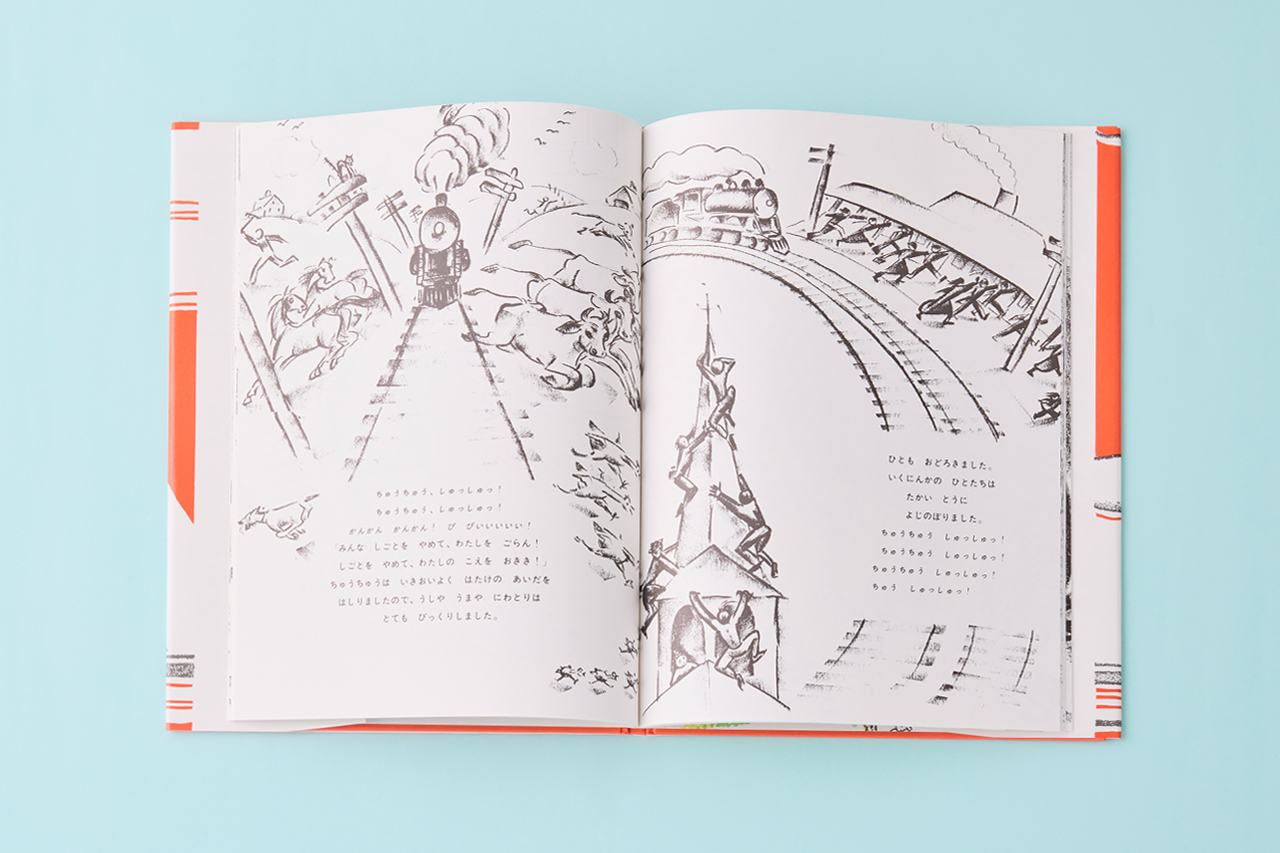 ちゅうちゅう、しゅっしゅっ！
ちゅうちゅう、しゅっしゅっ！
かんかん　かんかん！　び　びいいいいい！
「みんな　しごとを　やめて、わたしを　ごらん！
しごとを　やめて、わたしの　こえを　おきき！」
ちゅうちゅうは　いきおいよく　はたけの　あいだを
はしりましたので、うしや　うまや　にわとりは
とても　びっくりしました。
ひとも　おどろきました。
いくにんかの　ひとたちは
たかい　とうに
よじのぼりました。
ちゅうちゅう　しゅっしゅっ！
ちゅうちゅう　しゅっしゅっ！
ちゅうちゅう　しゅっしゅっ！
ちゅう　しゅっしゅっ！